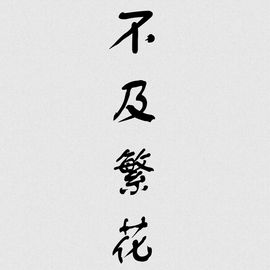 不及繁花